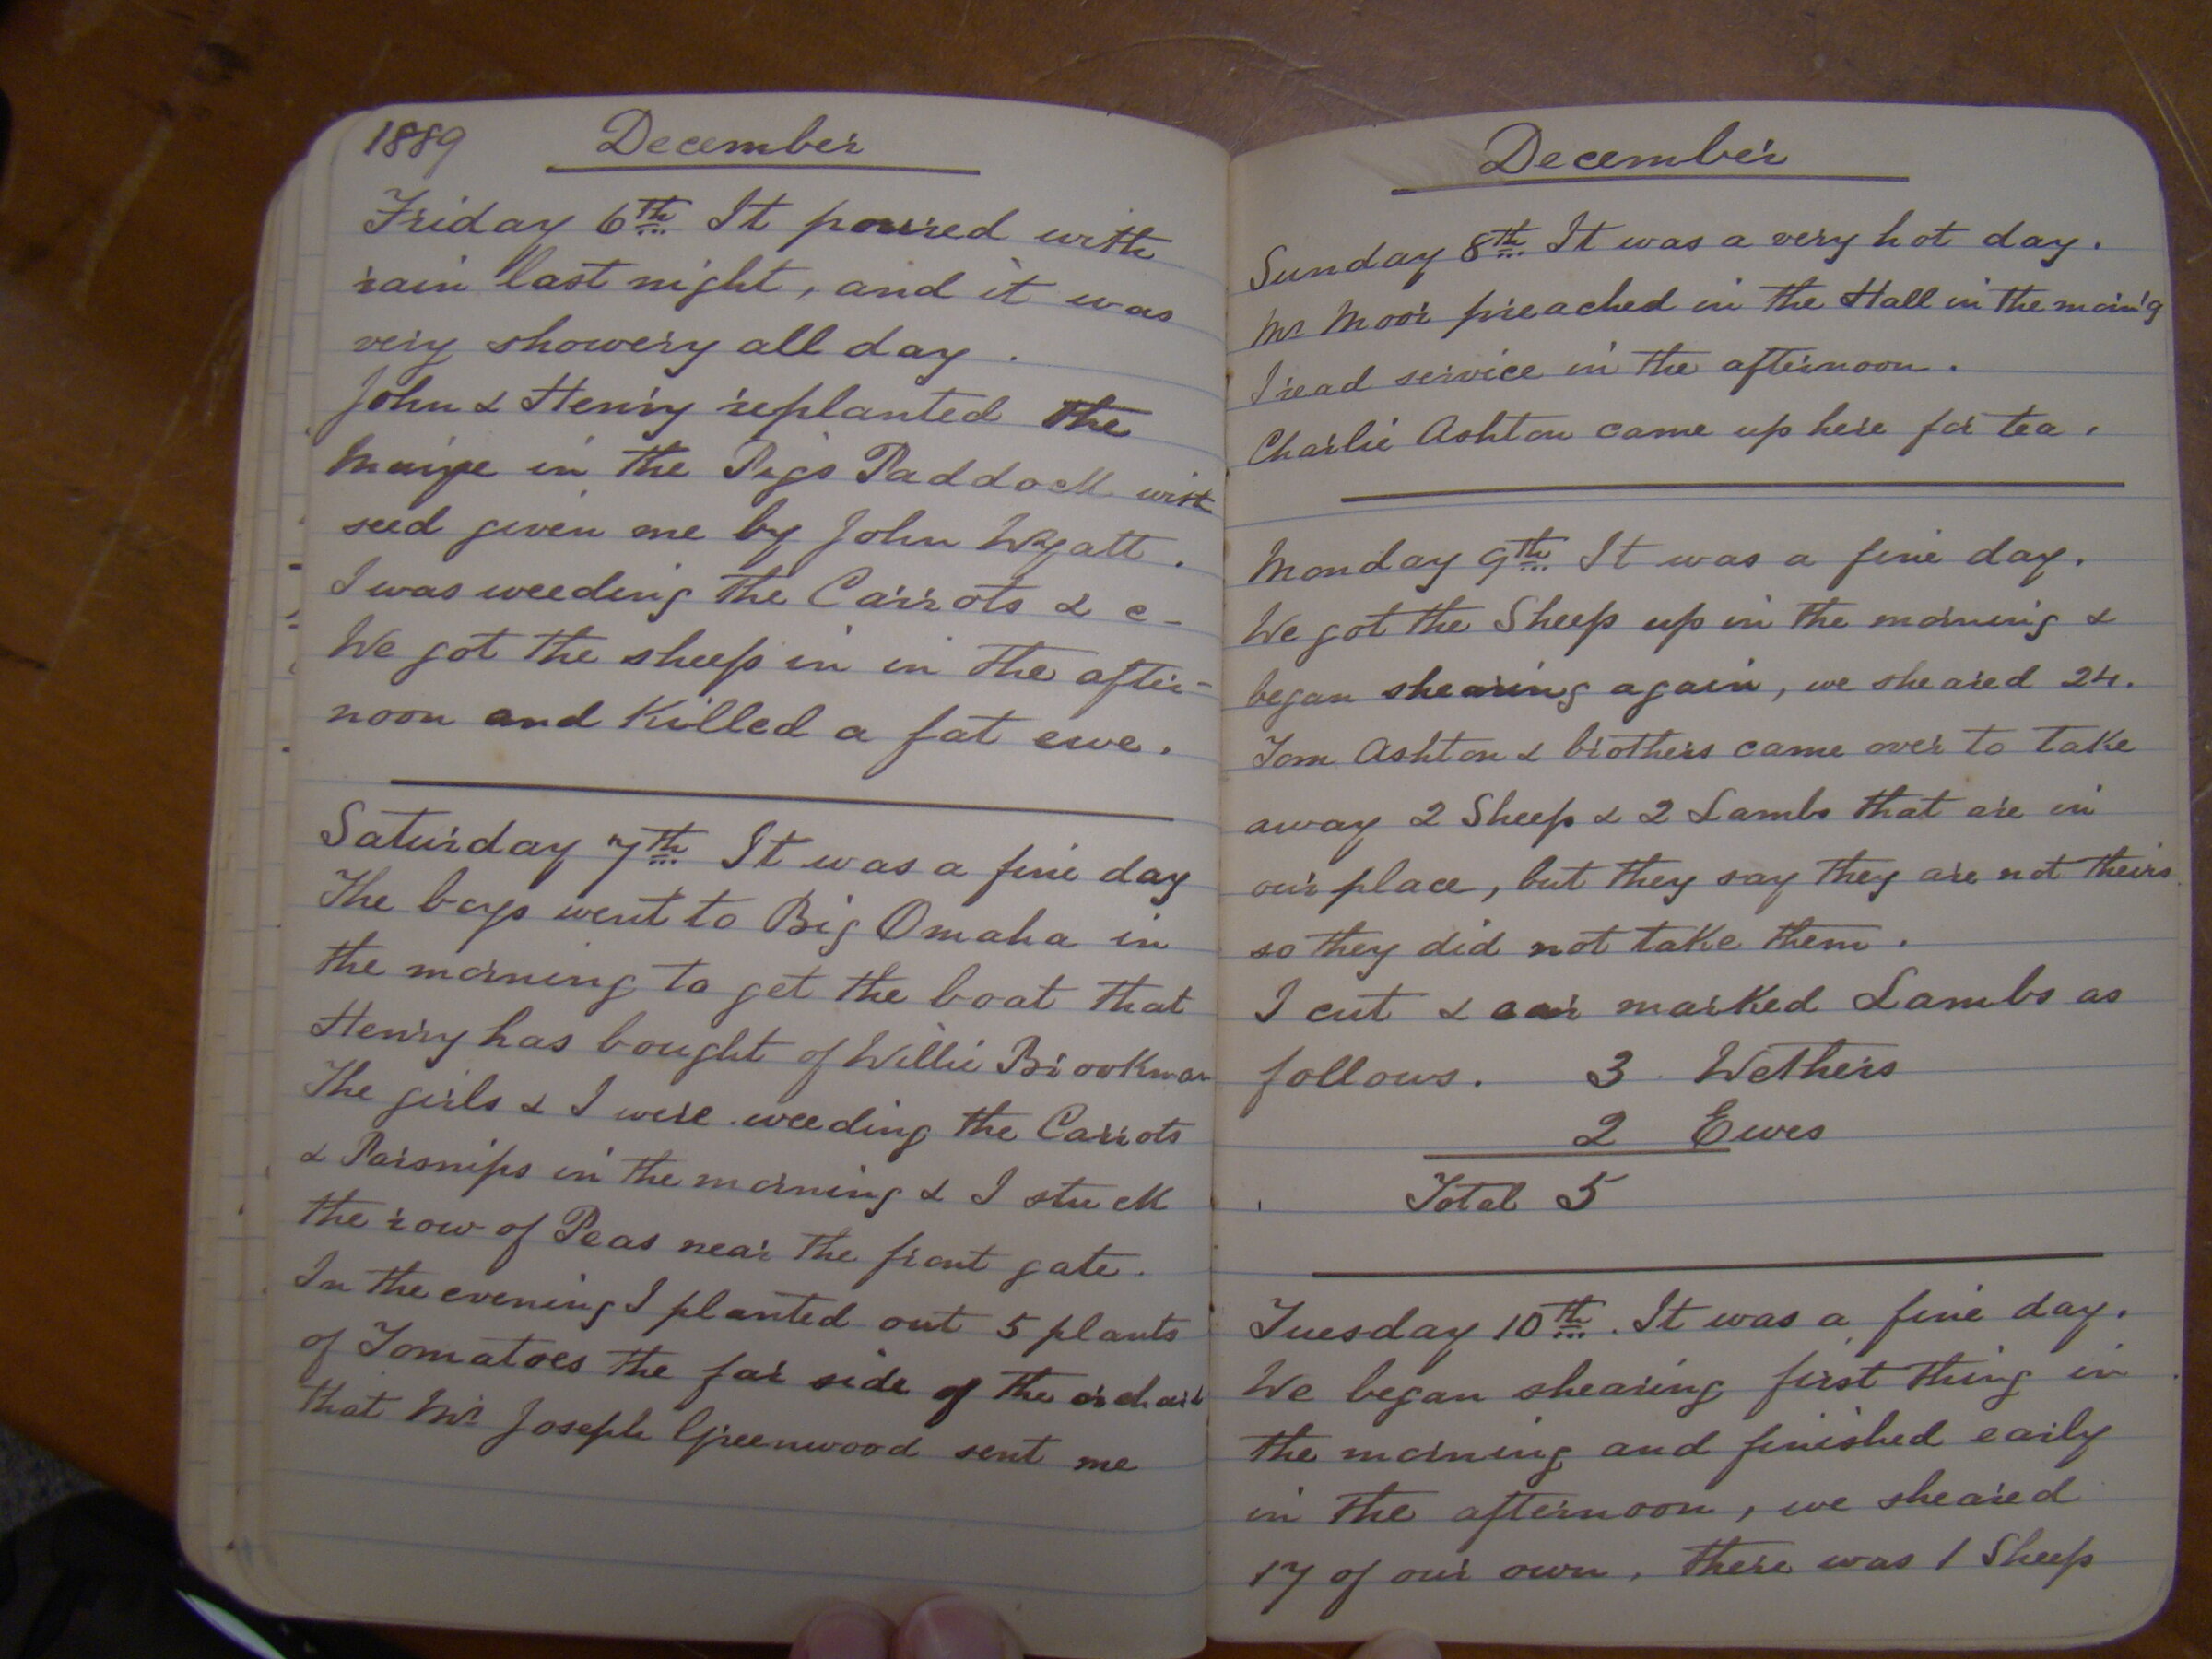 1889 December
Friday 6th It poured with
rain last night, and it was
very showery all day.
John & Henry replanted the
Maize in the Pigs Paddock with
seed given me by John Wyatt.
I was weeding the Carrots & c-
We got the sheep in in the after-
noon and Killed a fat ewe.
Saturday 7th It was a fine day
The boys went to Big Omaha in
the morning to get the boat that
Henry has bought of Willie Brookman
The girls & I were weeding the Carrots
& Parsnips in the morning & I stuck
the row of Peas near the front gate.
In the evening I planted out 5 plants
of Tomatoes the far side of the orchard
that Mr Joseph Greenwood sent me
December
Sunday 8th It was a very hot day.
Mr Moor preached in the Hall in the morn'g
I read service in the afternoon.
Charlie Ashton came up here for tea.
Monday 9th It was a fine day.
We got the Sheep up in the morning &
began shearing again, we sheared 24.
Tom Ashton & brothers came over to take
away 2 Sheep & 2 Lambs that are in
our place, but they say they are not theirs
so they did not take them.
I cut & ear marked Lambs as
follows. 3 Wethers
2 Ewes
Total 5
Tuesday 10th. It was a fine day.
We began shearing first thing in
the morning and finished early
in the afternoon, we sheared
17 of our own, there was 1 Sheep